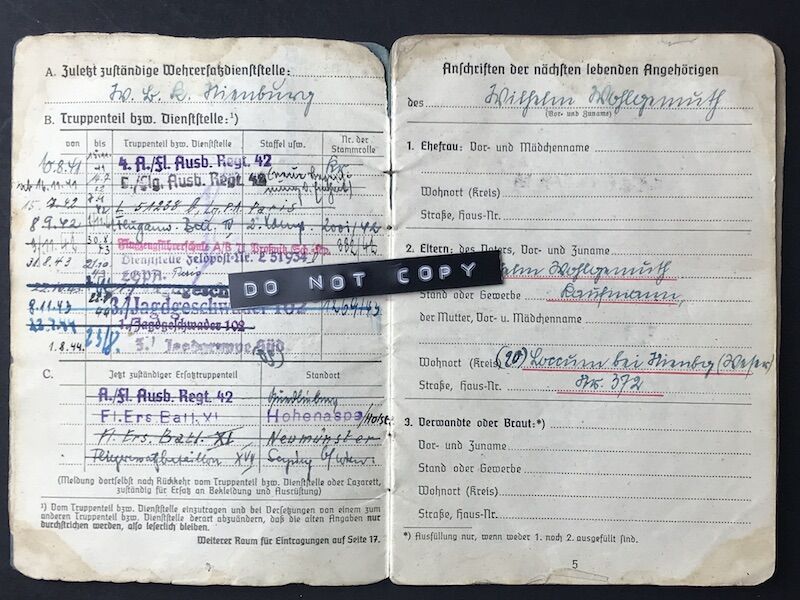 A. Zuletzt zuständige Wehrersatzdienststelle:
W. B. K. Nienburg
B. Truppenteil bzw. Dienststelle:¹)
von bis Truppenteil bzw. Dienststelle Staffel usw. Nr. der Stammrolle
10.8.41 4. A./Fl. Ausb. Regt. 42
Flg. Ausb. Regt. 42
15.7.42 L 51238 Paris
8.9.42 IV 2. Komp. 2001/42
Flugzeugführerschule A/B 332/42
31.8.43 Dienststelle Feldpost-Nr. L 31934
Paris
DO NOT COPY
8.11.43 3./Jagdgeschwader 102 1269/43
22.7.44 1./Jagdgeschwader 102
1.8.44. 3./ Jagdgruppe Süd
C. Jetzt zuständiger Ersatztruppenteil Standort
A./Fl. Ausb. Regt. 42 Quedlinburg
Fl. Ers. Batl. XI Hohenaspe/Holst.
Fl. Ers. Batl. XI Neumünster
XVII b/Wien.
(Meldung dortselbst nach Rückkehr vom Truppenteil bzw. Dienststelle oder Lazarett,
zuständig für Ersatz an Bekleidung und Ausrüstung)
¹) Vom Truppenteil bzw. Dienststelle einzutragen und bei Versetzungen von einem zum
anderen Truppenteil bzw. Dienststelle derart abzuändern, daß die alten Angaben nur
durchstrichen werden, also leserlich bleiben.
Weiterer Raum für Eintragungen auf Seite 17.
Anschriften der nächsten lebenden Angehörigen
des Wilhelm Wohlgemuth
(Vor- und Zuname)
1. Ehefrau: Vor- und Mädchenname
Wohnort (Kreis)
Straße, Haus-Nr.
2. Eltern: des Vaters, Vor- und Zuname
Wohlgemuth
Stand oder Gewerbe Kaufmann,
der Mutter, Vor- u. Mädchenname
Wohnort (Kreis) (20) Loccum bei Nienbg (Weser)
Straße, Haus-Nr. Nr. 372
3. Verwandte oder Braut:*)
Vor- und Zuname
Stand oder Gewerbe
Wohnort (Kreis)
Straße, Haus-Nr.
*) Ausfüllung nur, wenn weder 1. noch 2. ausgefüllt sind.
5